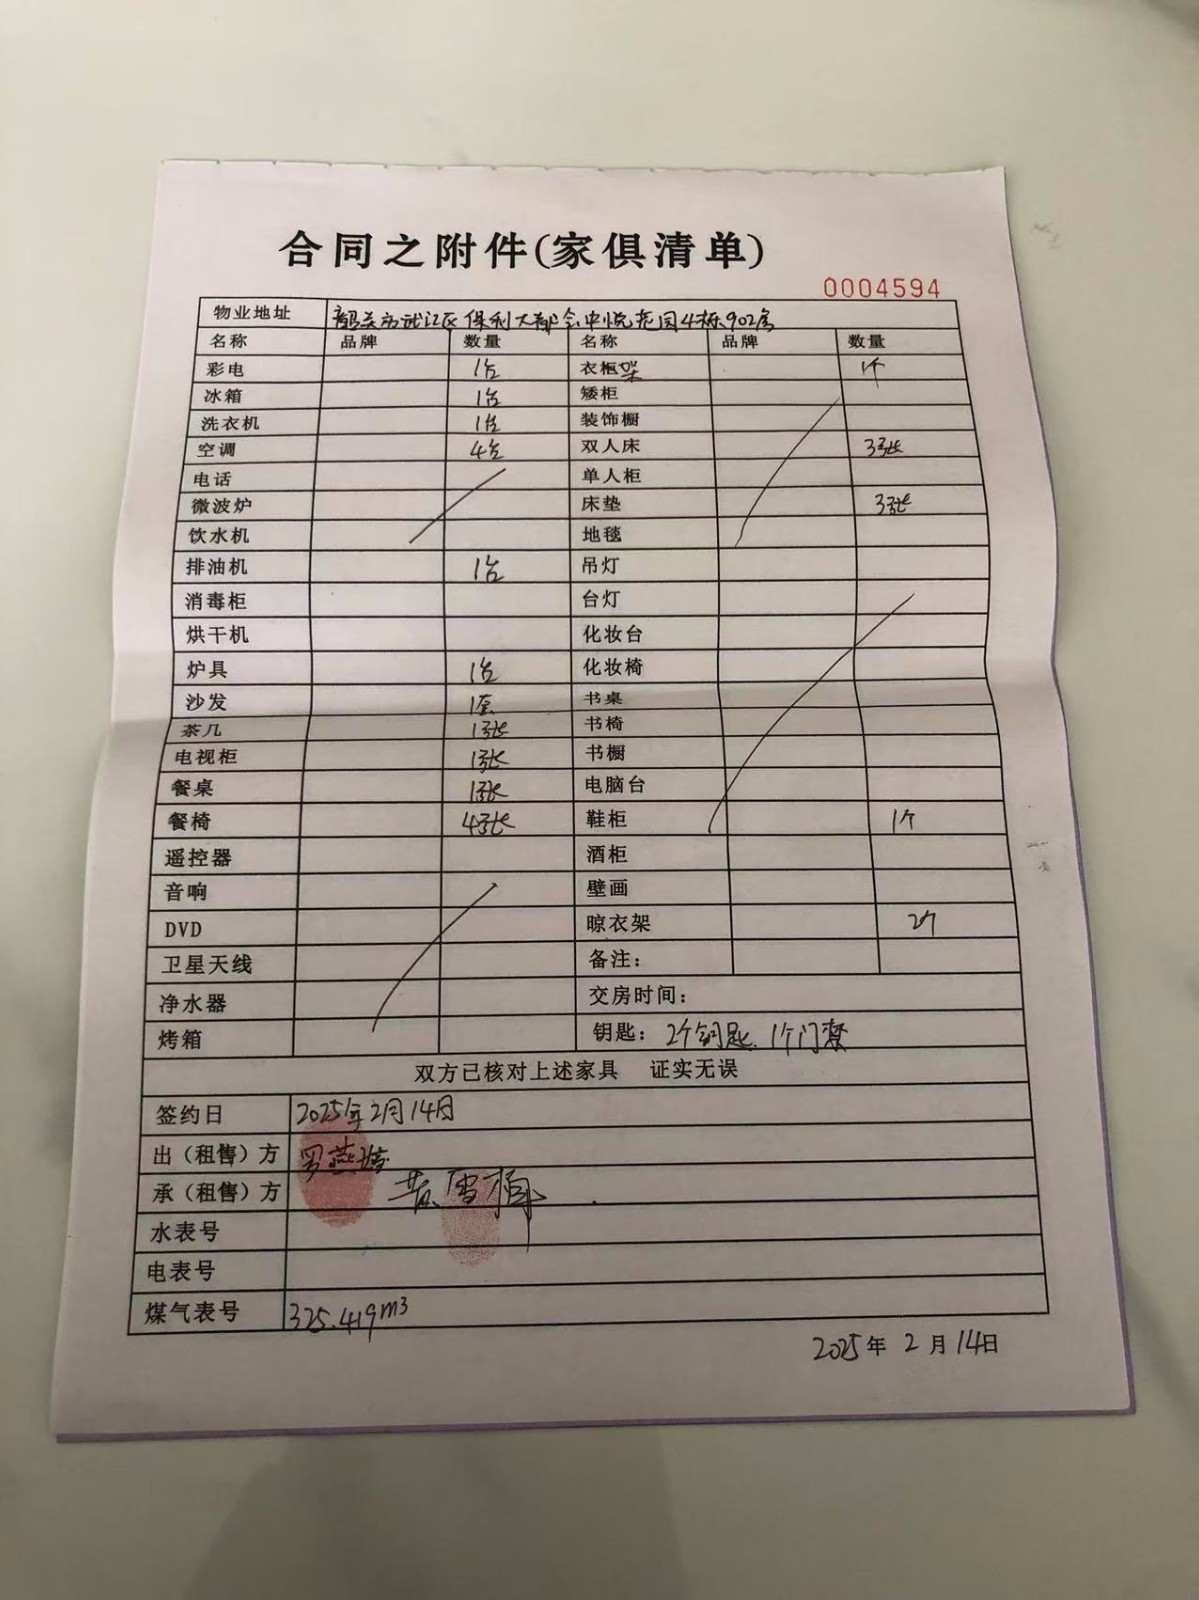 合同之附件(家俱清单)
0004594
物业地址 韶关市武江区保利大都会中悦花园4栋902房
名称 品牌 数量 名称 品牌 数量
彩电 1台 衣柜架 1个
冰箱 1台 矮柜
洗衣机 1台 装饰橱
空调 4台 双人床 3张
电话 单人柜
微波炉 床垫 3张
饮水机 地毯
排油机 1台 吊灯
消毒柜 台灯
烘干机 化妆台
炉具 1台 化妆椅
沙发 1套 书桌
茶几 1张 书椅
电视柜 1张 书橱
餐桌 1张 电脑台
餐椅 4张 鞋柜 1个
遥控器 酒柜
音响 壁画
DVD 晾衣架 2个
卫星天线 备注：
净水器 交房时间：
烤箱 钥匙： 2个钥匙 1个门禁
双方已核对上述家具 证实无误
签约日 2025年2月14日
出（租售）方 罗燕
承（租售）方 黄雪梅
水表号
电表号
煤气表号 325.419m3
2025年 2月14日